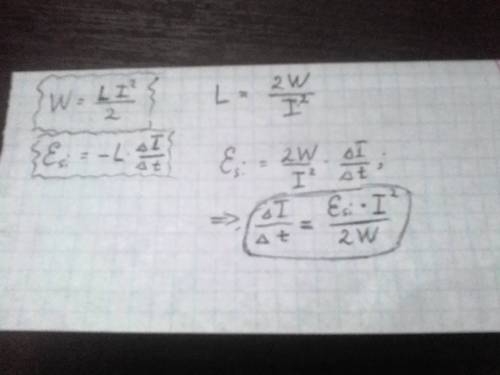 W = LI²/2
ℰsi = -L · ΔI/Δt
L = 2W/I²
ℰsi = 2W/I² · ΔI/Δt ;
=> ΔI/Δt = ℰsi · I²/2W